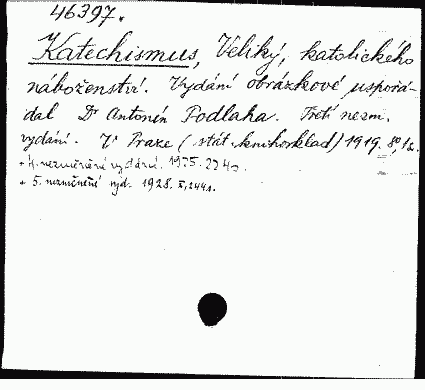 46397.
Katechismus, Veliký, katolického
náboženství. Vydání obrázkové uspořá-
dal Dr Antonín Podlaha. Třetí nezm.
vydání. V Praze (stát. knihosklad) 1919. 8°,
+ 4. nezměněné vydání. 1925.
+ 5. nezměněné vyd. 1928.